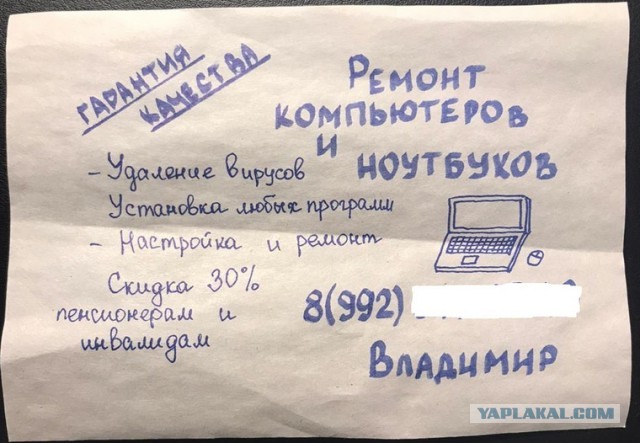 ГАРАНТИЯ
КАЧЕСТВА
РЕМОНТ
КОМПЬЮТЕРОВ
И
НОУТБУКОВ
- Удаление вирусов
Установка любых программ
- Настройка и ремонт
Скидка 30%
пенсионерам и
инвалидам
8(992)
ВЛАДИМИР
YAPLAKAL.COM